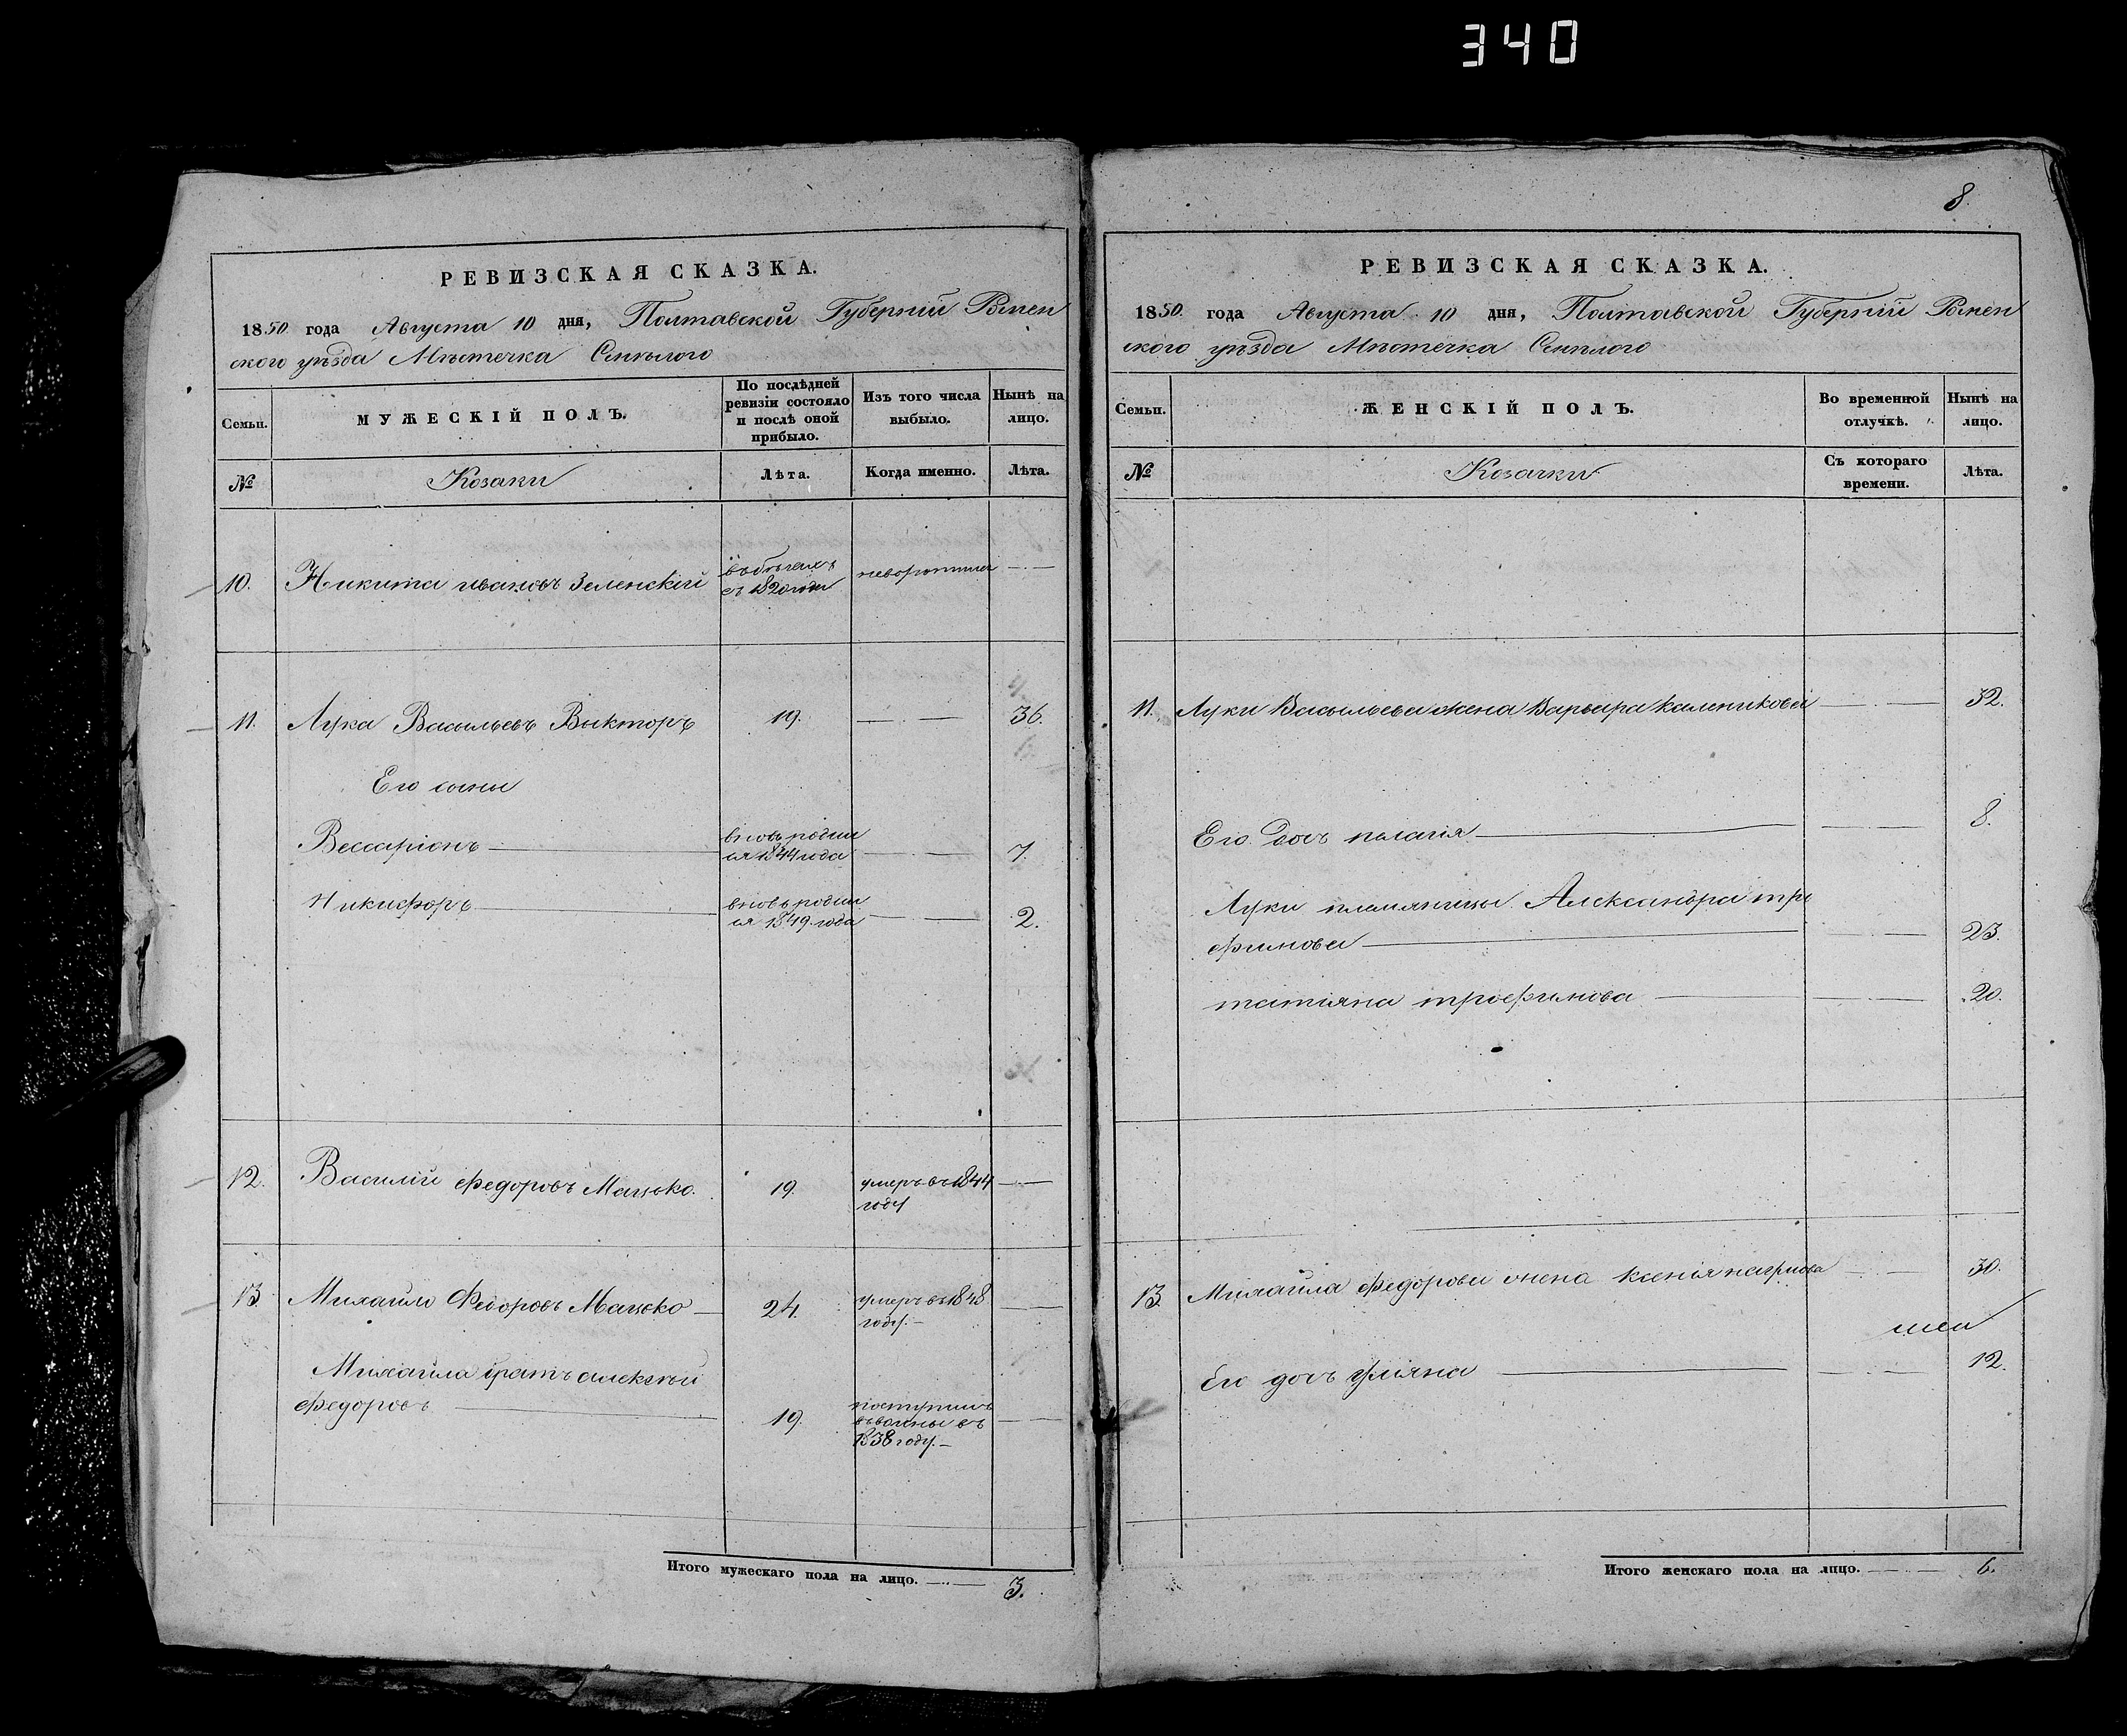 340
8
РЕВИЗСКАЯ СКАЗКА.
1850 года Августа 10 дня, Полтавской Губерніи Ромен
ского уѣзда Мѣстечка Смѣлого
Семьи.
МУЖЕСКІЙ ПОЛЪ.
По послѣдней
ревизіи состояло
и послѣ оной
прибыло.
Изъ того числа
выбыло.
Нынѣ на
лицо.
№
Козаки
Лѣта.
Когда именно.
Лѣта.
10. Никита ивановъ Зеленскій
въ бѣгахъ
съ 1820 года
11. Лука Васильевъ Выкторъ 19. 36.
Его сыны
Вессаріонъ
вновь родил
ся 1844 года
7.
Никифоръ
вновь родил
ся 1849 года
2.
12. Василій Федоровъ 19.
умеръ въ 1844
году
13. Михайло Федоровъ 24.
умеръ въ 1848
году.
Михайла братъ алексѣй
Федоровъ 19.
поступилъ
въ
1838 году.
Итого мужескаго пола на лицо. 3.
РЕВИЗСКАЯ СКАЗКА.
1850 года Августа 10 дня, Полтавской Губерніи Ромен
ского уѣзда Мѣстечка Смѣлого
Семьи.
ЖЕНСКІЙ ПОЛЪ.
Во временной
отлучкѣ.
Нынѣ на
лицо.
№
Козачки
Съ котораго
времени.
Лѣта.
11. Луки Васильева жена Варвара Каленикова 32.
Его дочь пелагія 8.
Луки племяницы Александра тро
фимова 23.
татіяна трофимова 20.
13. Михайла Федорова жена ксенія 30.
Его дочь уліяна 12.
Итого женскаго пола на лицо. 6.